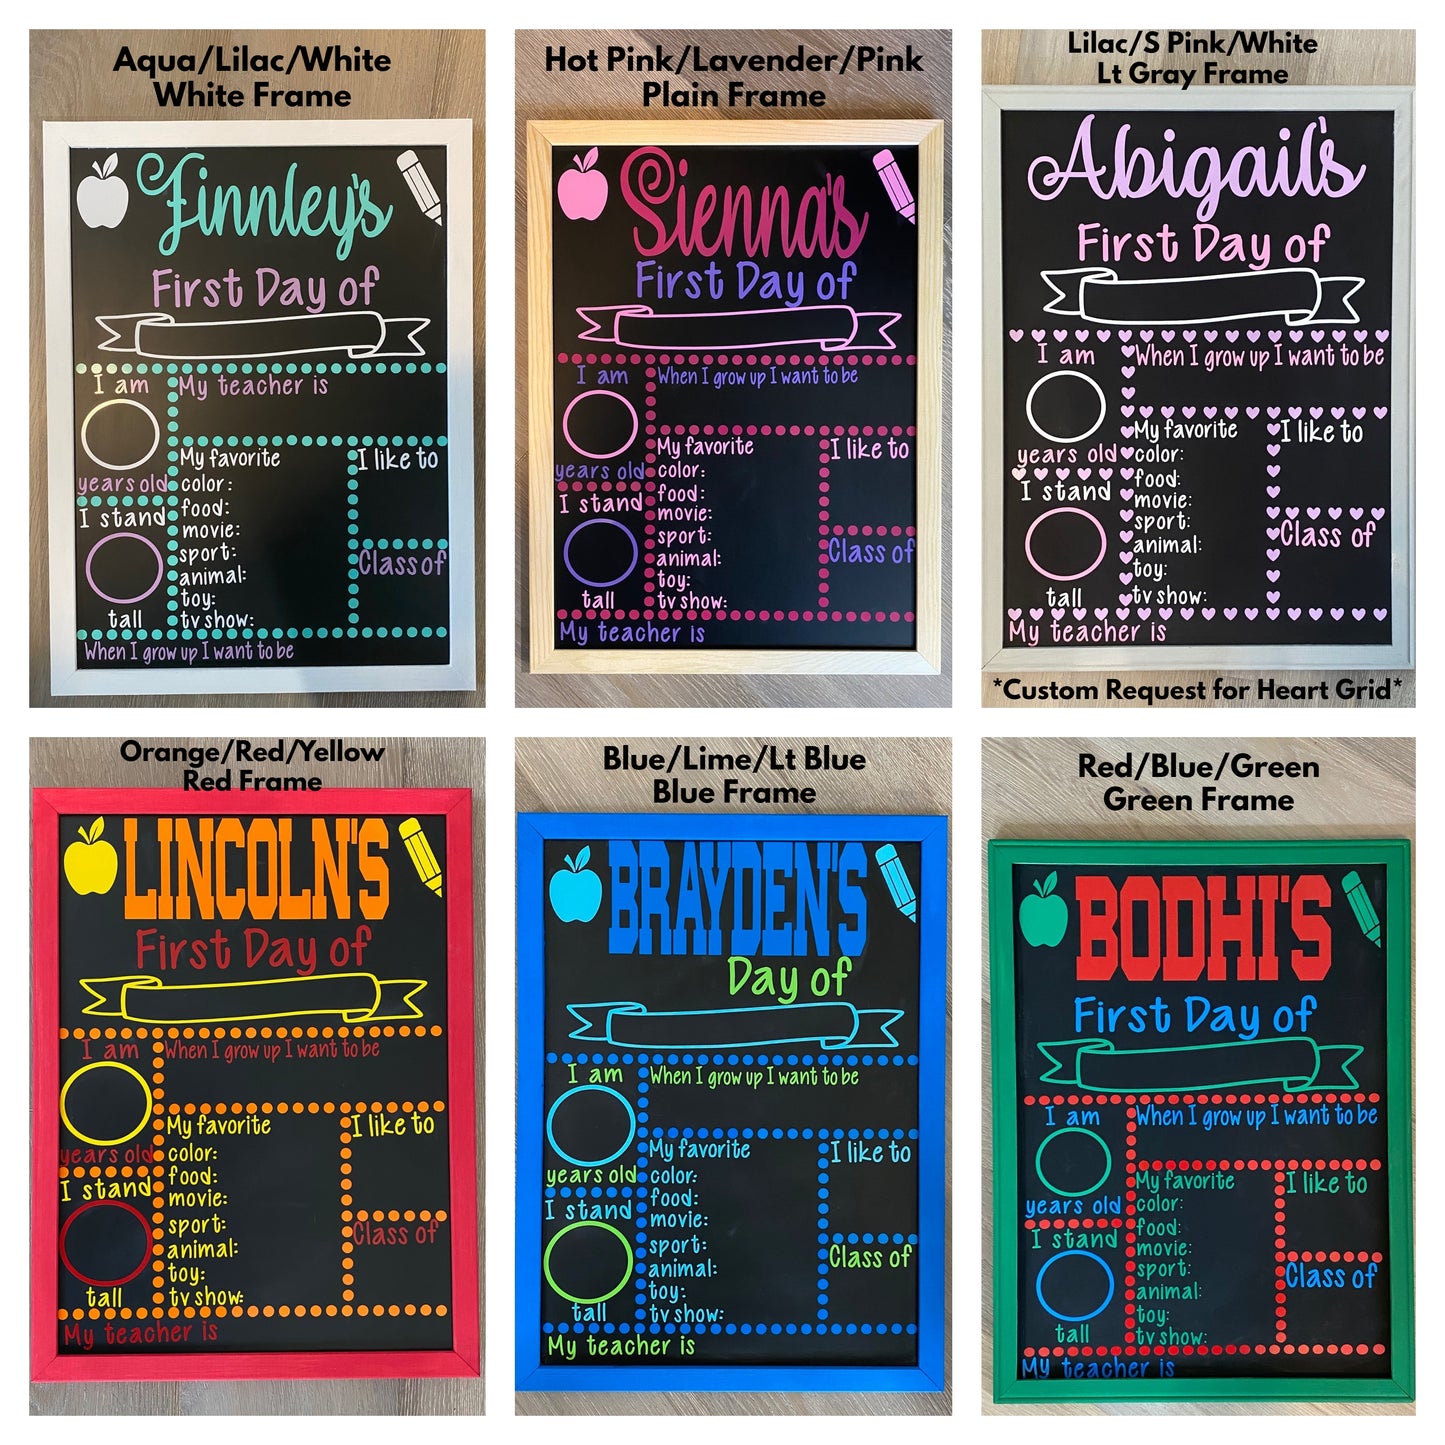 Aqua/Lilac/White
White Frame
Finnley's
First Day of
I am
My teacher is
years old
My favorite
color:
food:
movie:
sport:
animal:
toy:
tv show:
I like to
I stand
tall
Class of
When I grow up I want to be
Hot Pink/Lavender/Pink
Plain Frame
Sienna's
First Day of
I am
When I grow up I want to be
years old
My favorite
color:
food:
movie:
sport:
animal:
toy:
tv show:
I like to
I stand
tall
Class of
My teacher is
Lilac/S Pink/White
Lt Gray Frame
Abigail's
First Day of
I am
When I grow up I want to be
years old
My favorite
color:
food:
movie:
sport:
animal:
toy:
tv show:
I like to
I stand
tall
Class of
My teacher is
*Custom Request for Heart Grid*
Orange/Red/Yellow
Red Frame
LINCOLN'S
First Day of
I am
When I grow up I want to be
years old
My favorite
color:
food:
movie:
sport:
animal:
toy:
tv show:
I like to
I stand
tall
Class of
My teacher is
Blue/Lime/Lt Blue
Blue Frame
BRAYDEN'S
Day of
I am
When I grow up I want to be
years old
My favorite
color:
food:
movie:
sport:
animal:
toy:
tv show:
I like to
I stand
tall
Class of
My teacher is
Red/Blue/Green
Green Frame
BODHI'S
First Day of
I am
When I grow up I want to be
years old
My favorite
color:
food:
movie:
sport:
animal:
toy:
tv show:
I like to
I stand
tall
Class of
My teacher is